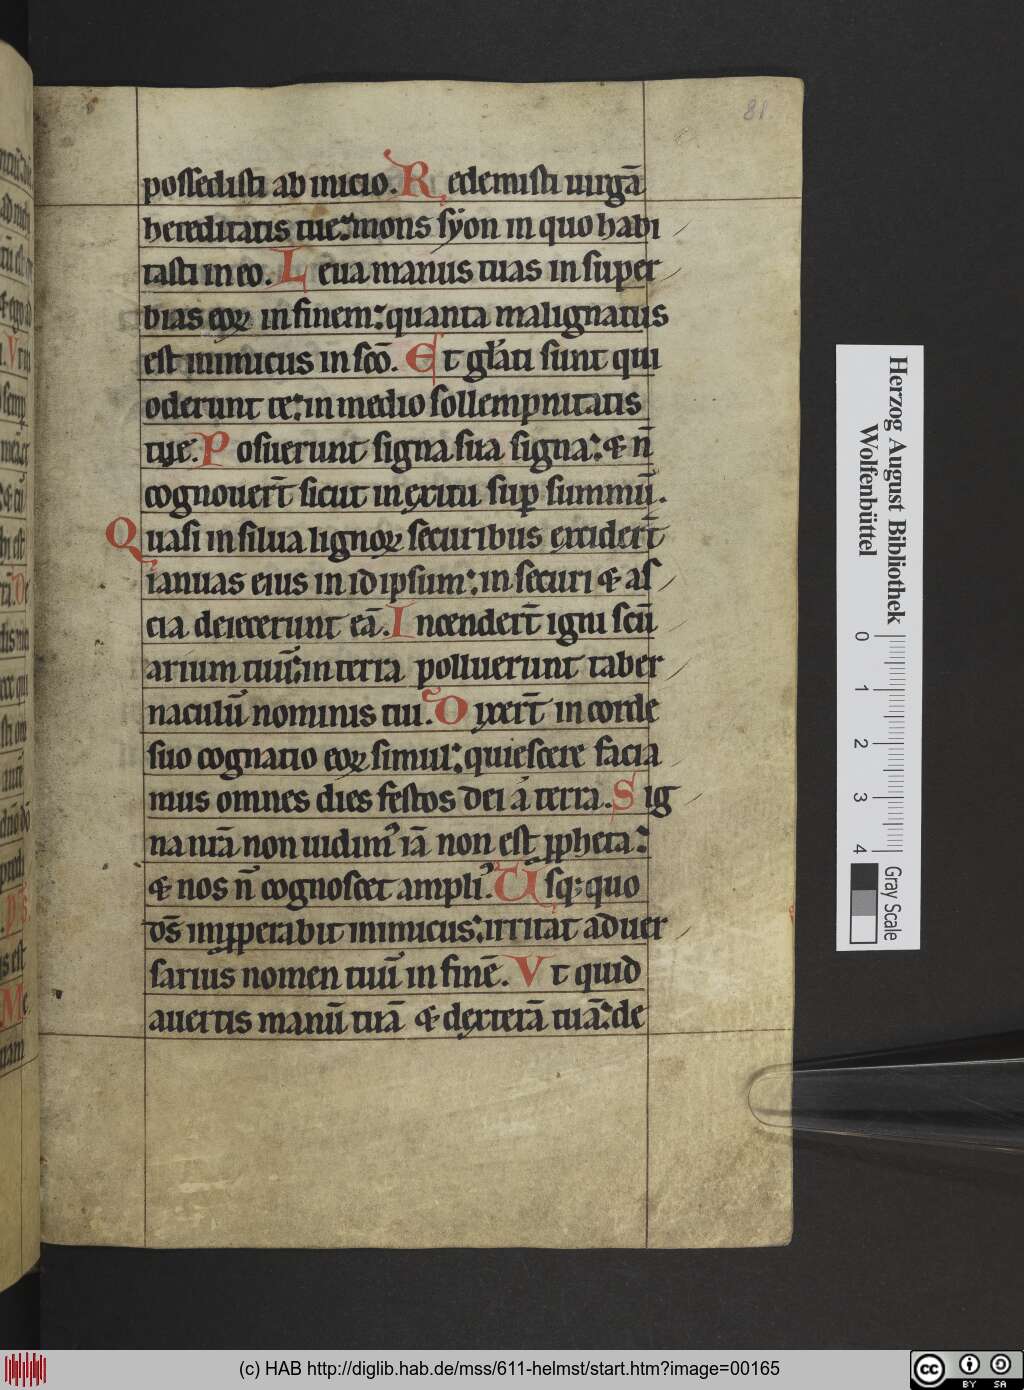 possedisti ab inicio. Redemisti uirgā
hereditatis tue: mons sẏon in quo habi
tasti in eo. Leua manus tuas in super
bias eoꝝ in finem: quanta malignatus
est inimicus in sc̄o. Et gl̄ati sunt qui
oderunt te: in medio sollempnitatis
tue. Posuerunt signa sua signa: & n̄
cognouert̄ sicut in exitu suꝑ summū.
Quasi in silua lignoꝝ securibus excidert̄
ianuas eius in id ipsum: in securi & as
cia deiecerunt eā. Incendert̄ igni scū
arium tuū: in terra polluerunt taber
naculū nominis tui. Dixert̄ in corde
suo cognatio eoꝝ simul: quiescere facia
mus omnes dies festos dei a terra. Sig
na nrā non uidimꝰ iā non est ꝓpheta:
& nos n̄ cognoscet ampliꝰ. Usqꝫ quo
ds̄ inꝓperabit inimicus: irritat aduer
sarius nomen tuū in finē. Vt quid
auertis manū tuā & dexterā tuā: de
81.
Herzog August Bibliothek
Wolfenbüttel
0 1 2 3 4
Gray Scale
(c) HAB http://diglib.hab.de/mss/611-helmst/start.htm?image=00165
cc BY SA